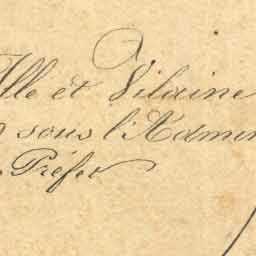 Ille et Vilaine
sous l'Admin
Préfet